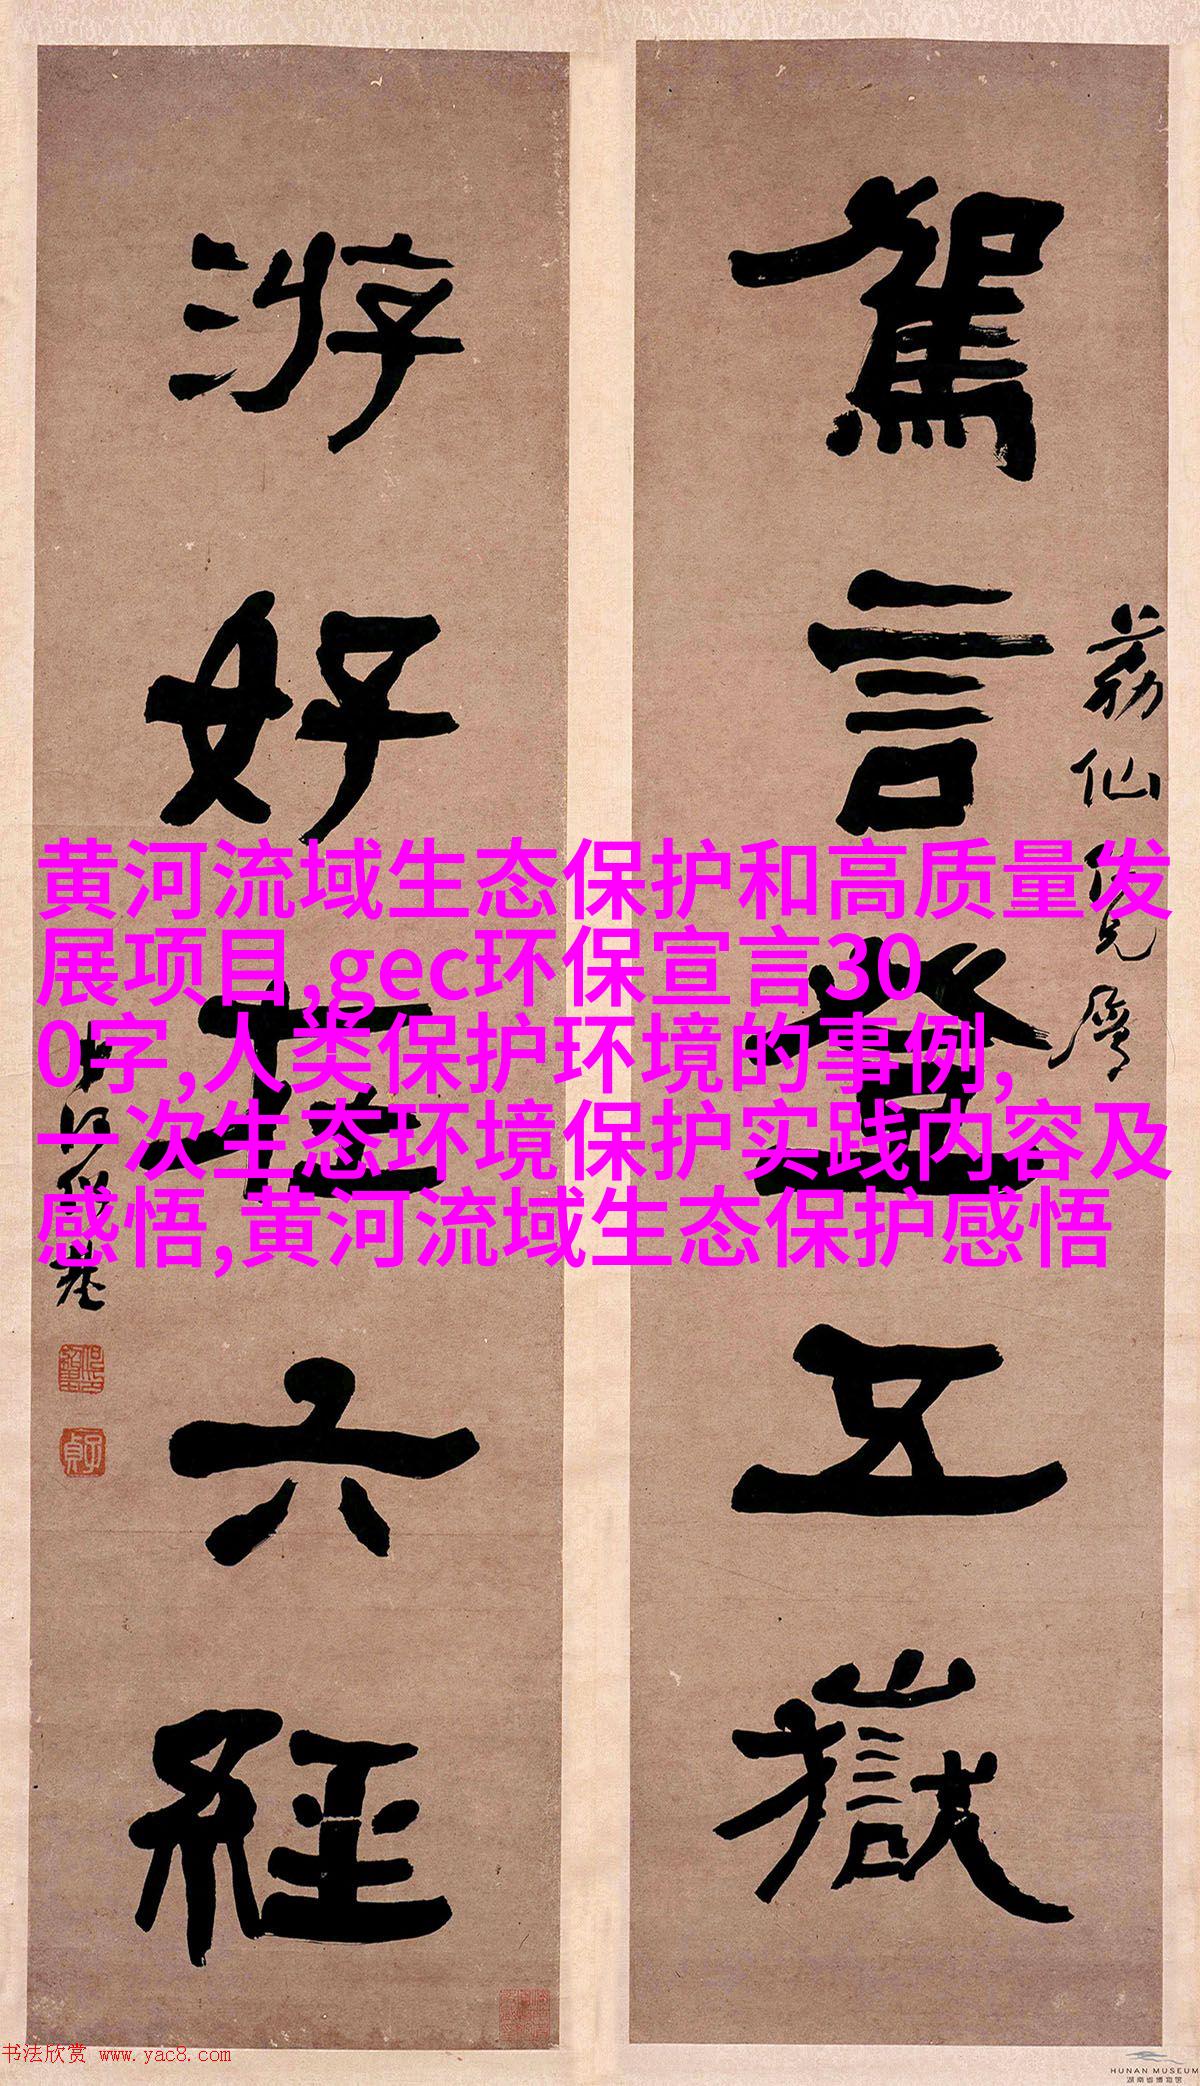 駕言登五嶽
荔仙仁兄屬
游好在六經
何紹基
子貞
黄河流域生态保护和高质量发
展项目,gec环保宣言30
0字,人类保护环境的事例,
一次生态环境保护实践内容及
感悟,黄河流域生态保护感悟
书法欣赏 www.yac8.com
HUNAN MUSEUM
湖南省博物馆